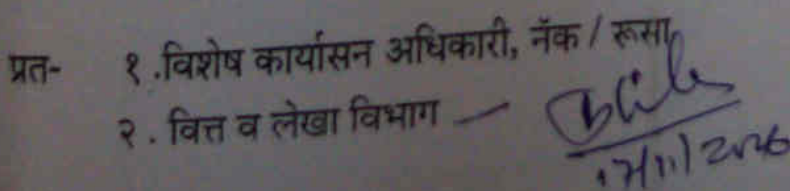 प्रत- १.विशेष कार्यासन अधिकारी, नॅक / रूसा
२. वित्त व लेखा विभाग —
17/11/2026